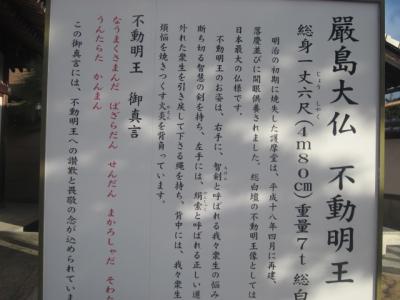 嚴島大仏 不動明王
総身一丈六尺(4m80㎝)重量7t 総白
じょう しゃく
明治の初期に焼失した護摩堂は、平成十八年四月に再建、
落慶並びに開眼供養されました。総白壇の不動明王像としては
日本最大の仏様です。
不動明王のお姿は、右手に、智剣と呼ばれる我々衆生の悩み
断ち切る智慧の剣を持ち、左手には、羂索と呼ばれる正しい道
外れた衆生を引き戻して下さる縄を持ち、背中には、我々衆生
煩悩を焼きつくす火炎を背負っています。
不動明王 御真言
なうまくさまんだ ばざらだん せんだん まかろしゃだ そわた
うんたらた かんまん
この御真言には、不動明王への讃歎と畏敬の念が込められていま